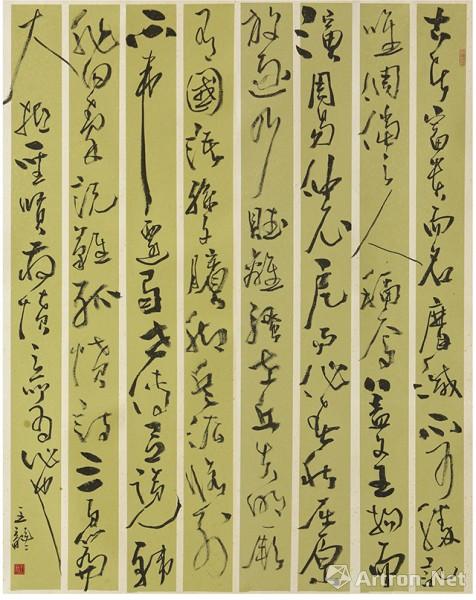 古者富貴而名摩滅不可勝記
唯倜儻之人稱焉蓋文王拘而
演周易仲尼厄而作春秋屈原
放逐乃賦離騷左丘失明厥
有國語孫子臏腳兵法修列
不韋遷蜀世傳呂覽韓
非囚秦說難孤憤詩三百篇
大抵聖賢發憤之所為作也
Artron.Net